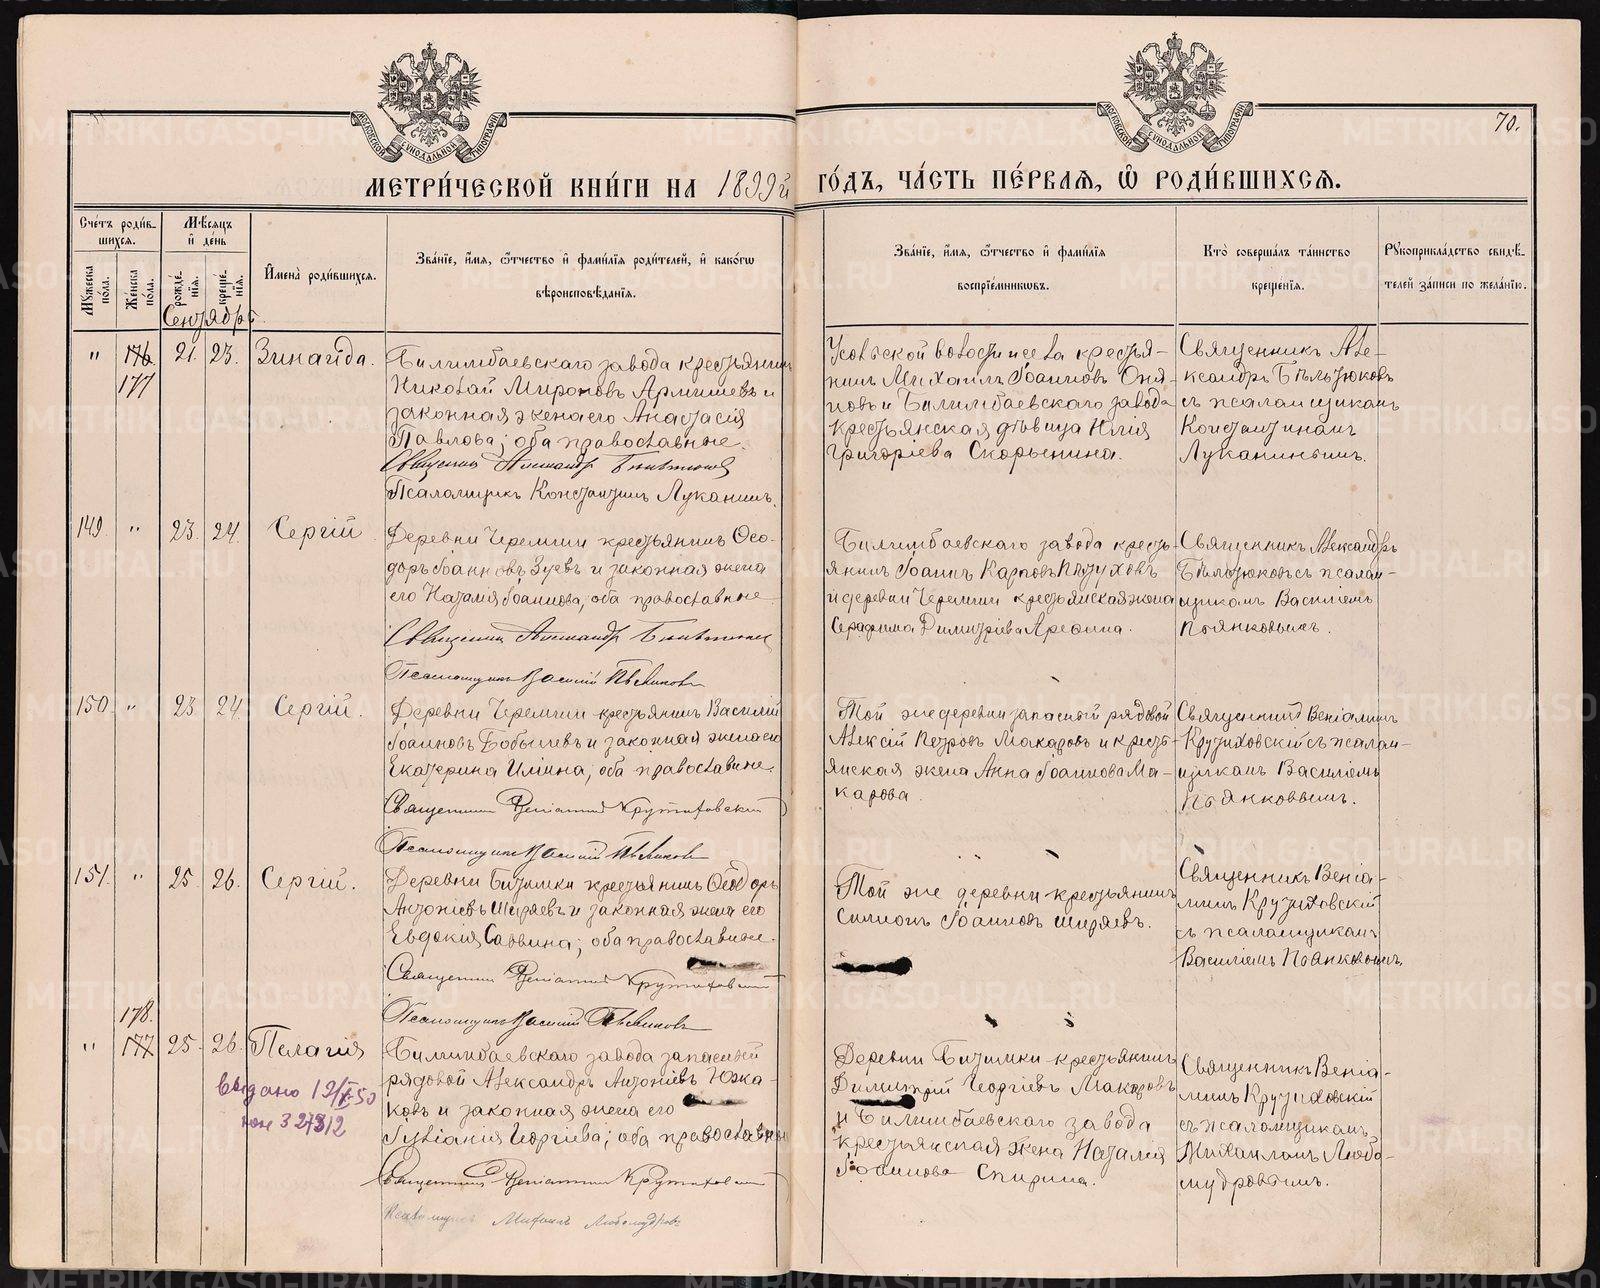 70.
МЕТРИ́ЧЕСКОЙ КНИ́ГИ НА 1899й ГО́ДЪ, ЧА́СТЬ ПЕ́РВАЯ, Ѽ РОДИ́ВШИХСЯ.
МОСКОВСКОЙ СѴНОДАЛЬНОЙ ТИПОГРАФІИ
МОСКОВСКОЙ СѴНОДАЛЬНОЙ ТИПОГРАФІИ
Сче́тъ роди́вшихся.
Мѣ́сяцъ и҆ де́нь
Мꙋ́жеска по́ла.
Же́нска по́ла.
рожде́нїя.
креще́нїя.
И҆мена̀ роди́вшихся.
Зва́нїе, и҆́мя, ѻ҆́тчество и҆ фамі́лїя роди́телей, и҆ како́гѡ
вѣроисповѣ́данїя.
Зва́нїе, и҆́мя, ѻ҆́тчество и҆ фамі́лїя
воспрїе́мникѡвъ.
Кто̀ соверша́лъ та́инство
креще́нїя.
Рꙋкоприкла́дство свидѣ́-
телей за́писи по жела́нїю.
Сентябрь
" 176 177 21. 23. Зинаида.
Билимбаевскаго завода крестьянинъ
Николай Мироновъ и
законная жена его Анастасія
Павлова; оба православные.
Священникъ Александръ
Псаломщикъ Константинъ Луканинъ.
Усольской волости села крестья-
нинъ Михаилъ Іоанновъ
и Билимбаевскаго завода
крестьянская дѣвица Юлія
Григоріева Скорынина.
Священникъ Але-
ксандръ
съ псаломщикомъ
Константиномъ
Луканинымъ.
149 " 23. 24. Сергій
Деревни Черемши крестьянинъ Ѳео-
доръ Іоанновъ Зуевъ и законная жена
его Наталія Іоаннова; оба православные.
Священникъ Александръ
Псаломщикъ Василій
Билимбаевскаго завода кресть-
янинъ Іоаннъ Карповъ Пѣтуховъ
и деревни Черемши крестьянская жена
Серафима Димитріева Арефина.
Священникъ Александръ
съ псалом-
щикомъ Василіемъ
150 " 23 24. Сергій.
Деревни Черемши крестьянинъ Василій
Іоанновъ Бобылевъ и законная жена его
Екатерина Иліина; оба православные.
Священникъ Веніаминъ Крутиховскій
Псаломщикъ Василій
Той же деревни запасный рядовой
Алексій Петровъ Макаровъ и кресть-
янская жена Анна Іоаннова Ма-
карова.
Священникъ Веніаминъ
Крутиховскій съ псалом-
щикомъ Василіемъ
151. " 25. 26. Сергій.
Деревни Битимки крестьянинъ Ѳеодоръ
Антоніевъ Ширяевъ и законная жена его
Евдокія Саввина; оба православные.
Священникъ Веніаминъ Крутиховскій
Псаломщикъ Василій
Той же деревни крестьянинъ
Симеонъ Іоанновъ Ширяевъ.
Священникъ Веніа-
минъ Крутиховскій
съ псаломщикомъ
Василіемъ
" 178. 177 25. 26. Пелагія
Выдано 12/ 50
Билимбаевскаго завода запасный
рядовой Александръ Антоніевъ Южа-
ковъ и законная жена его
Іуліанія Георгіева; оба православные
Священникъ Веніаминъ Крутиховскій
Псаломщикъ Михаилъ Любомудровъ
Деревни Битимки крестьянинъ
Димитрій Георгіевъ Макаровъ
и Билимбаевскаго завода
крестьянская жена Наталія
Іоаннова Спирина.
Священникъ Веніа-
минъ Крутиховскій
съ псаломщикомъ
Михаиломъ Любо-
мудровымъ.
METRIKI.GASO-URAL.RU